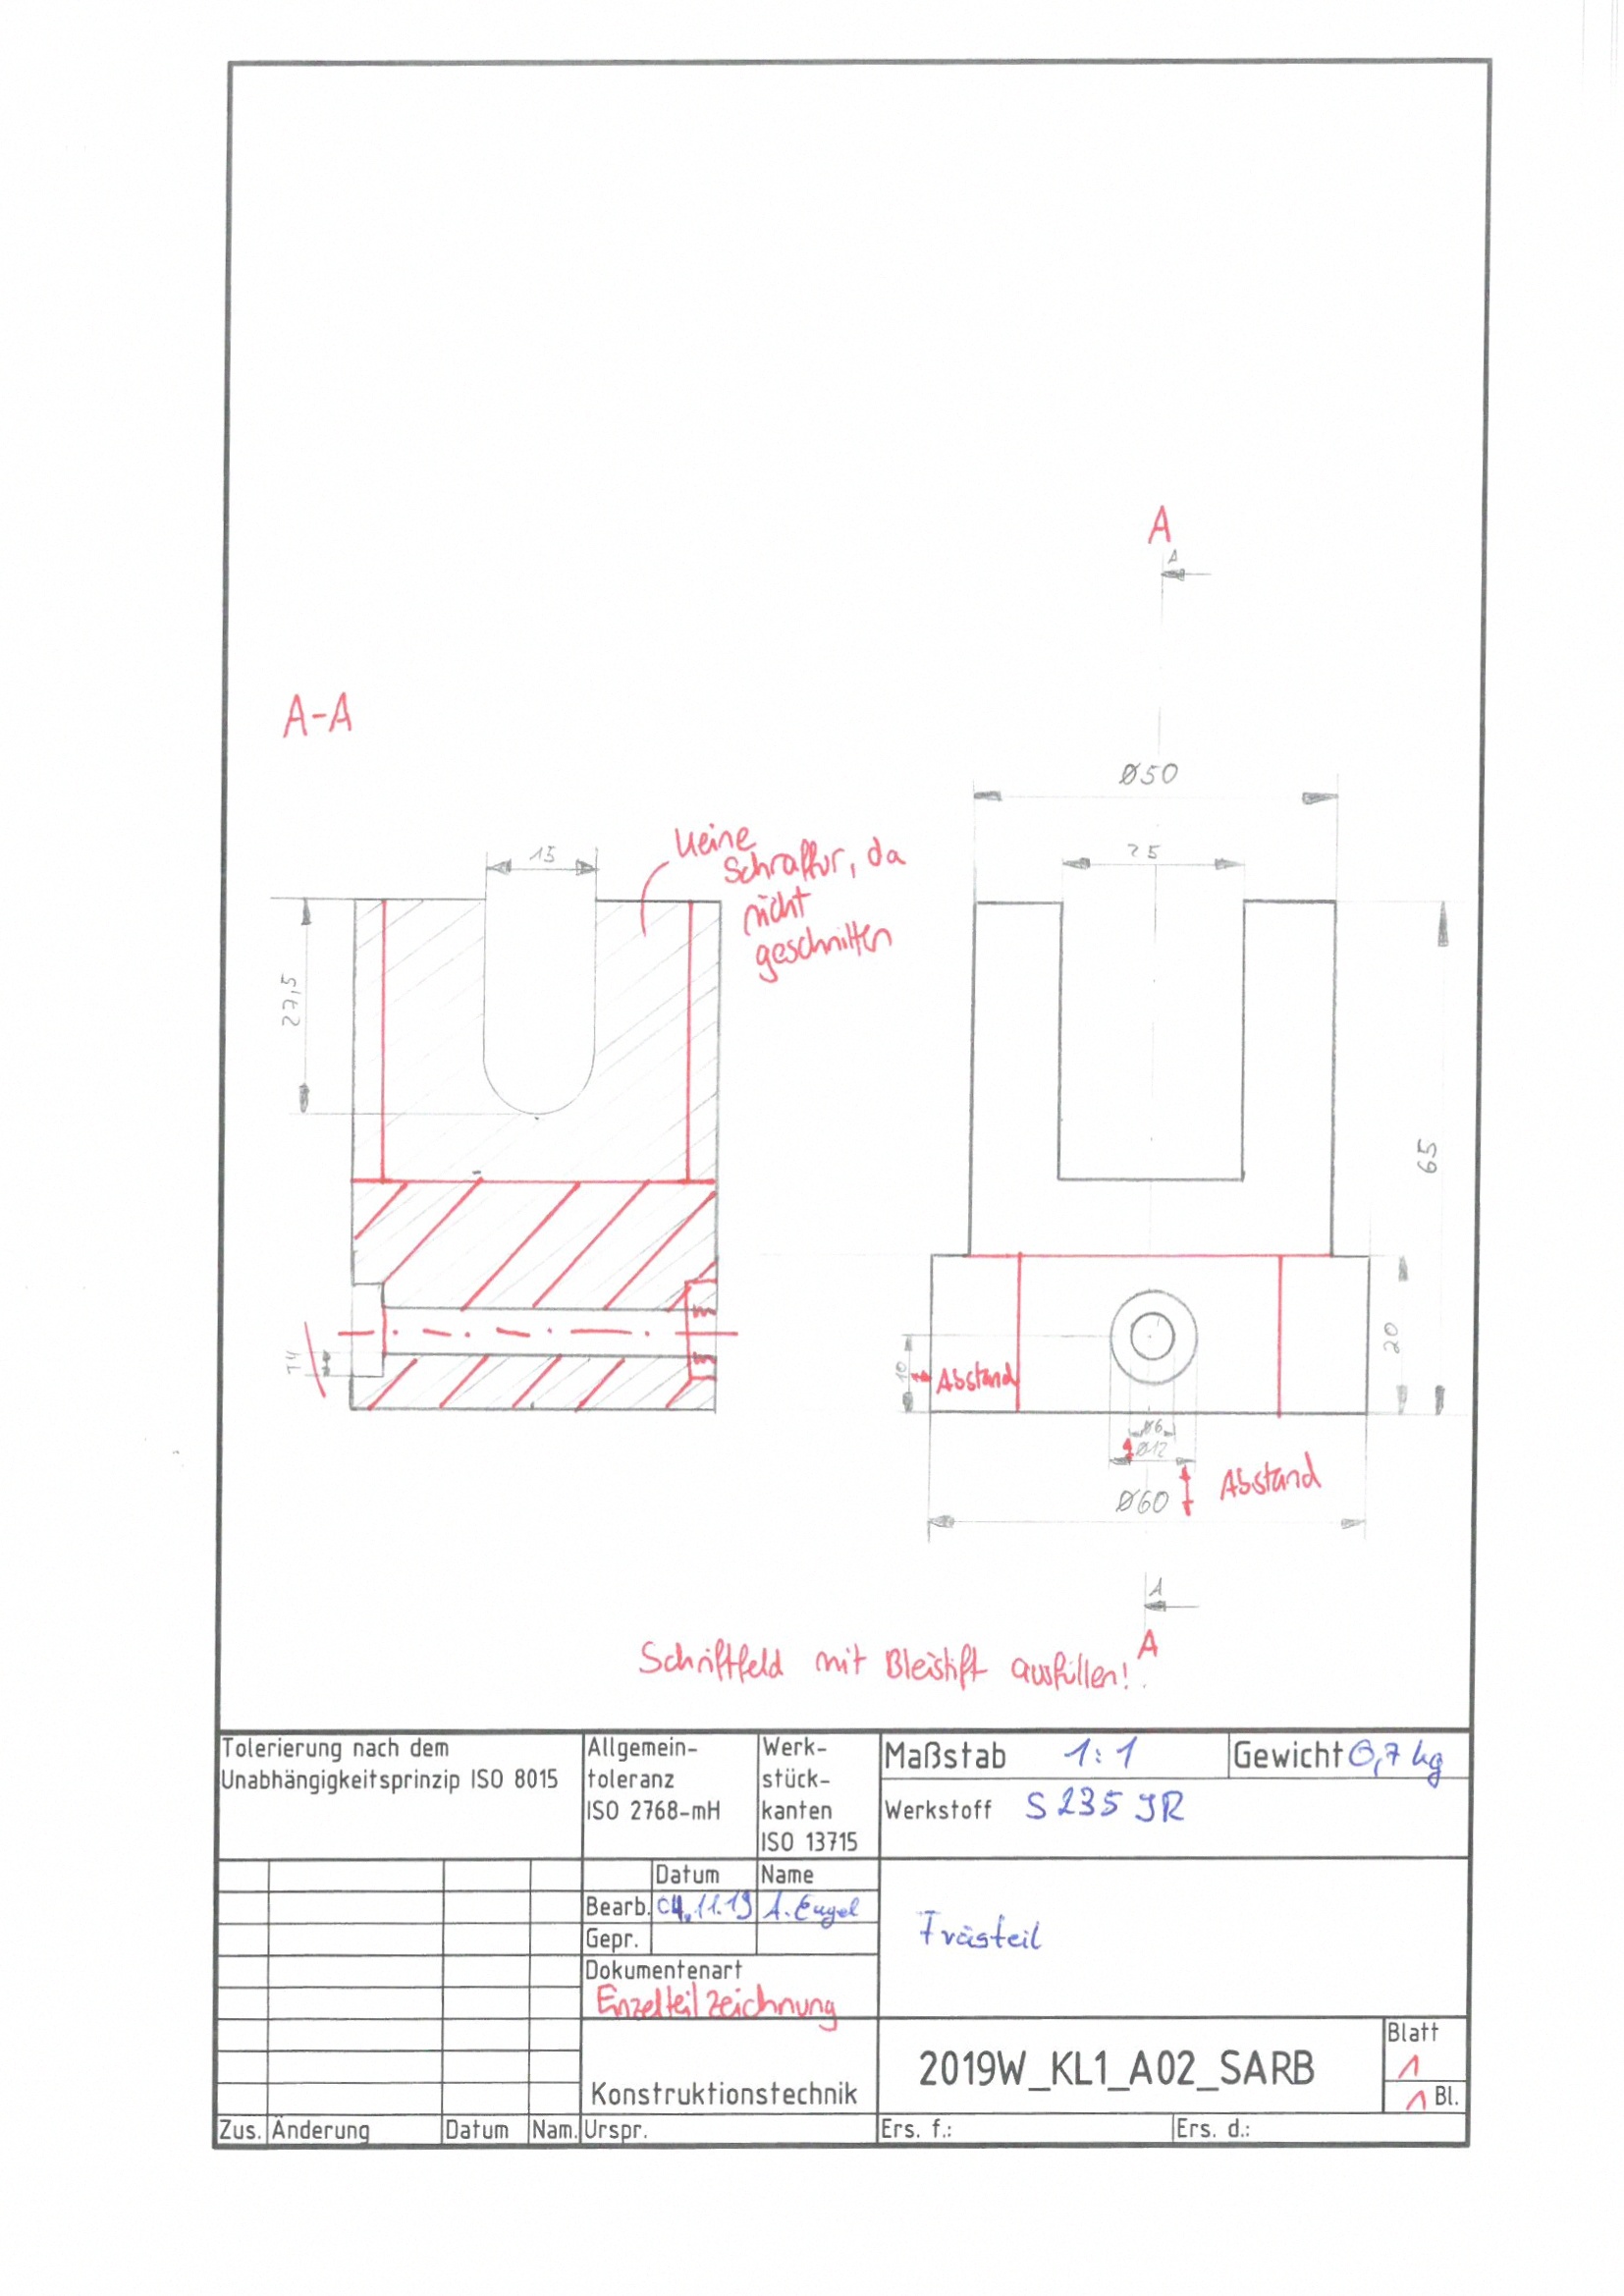 A
A
A-A
Ø50
Keine
Schraffur, da
nicht
geschnitten
15
25
27,5
65
20
10
Abstand
Ø6
Ø12
Ø60
Abstand
A
A
Schriftfeld mit Bleistift ausfüllen!
Tolerierung nach dem
Unabhängigkeitsprinzip ISO 8015
Allgemein-
toleranz
ISO 2768-mH
Werk-
stück-
kanten
ISO 13715
Maßstab 1:1
Gewicht 0,7 kg
Werkstoff S235JR
Datum Name
Bearb. 04.11.19 A. Engel
Gepr.
Frästeil
Dokumentenart
Einzelteilzeichnung
Konstruktionstechnik
2019W_KL1_A02_SARB
Blatt
1
1 Bl.
Zus. Änderung Datum Nam. Urspr. Ers. f.: Ers. d.: